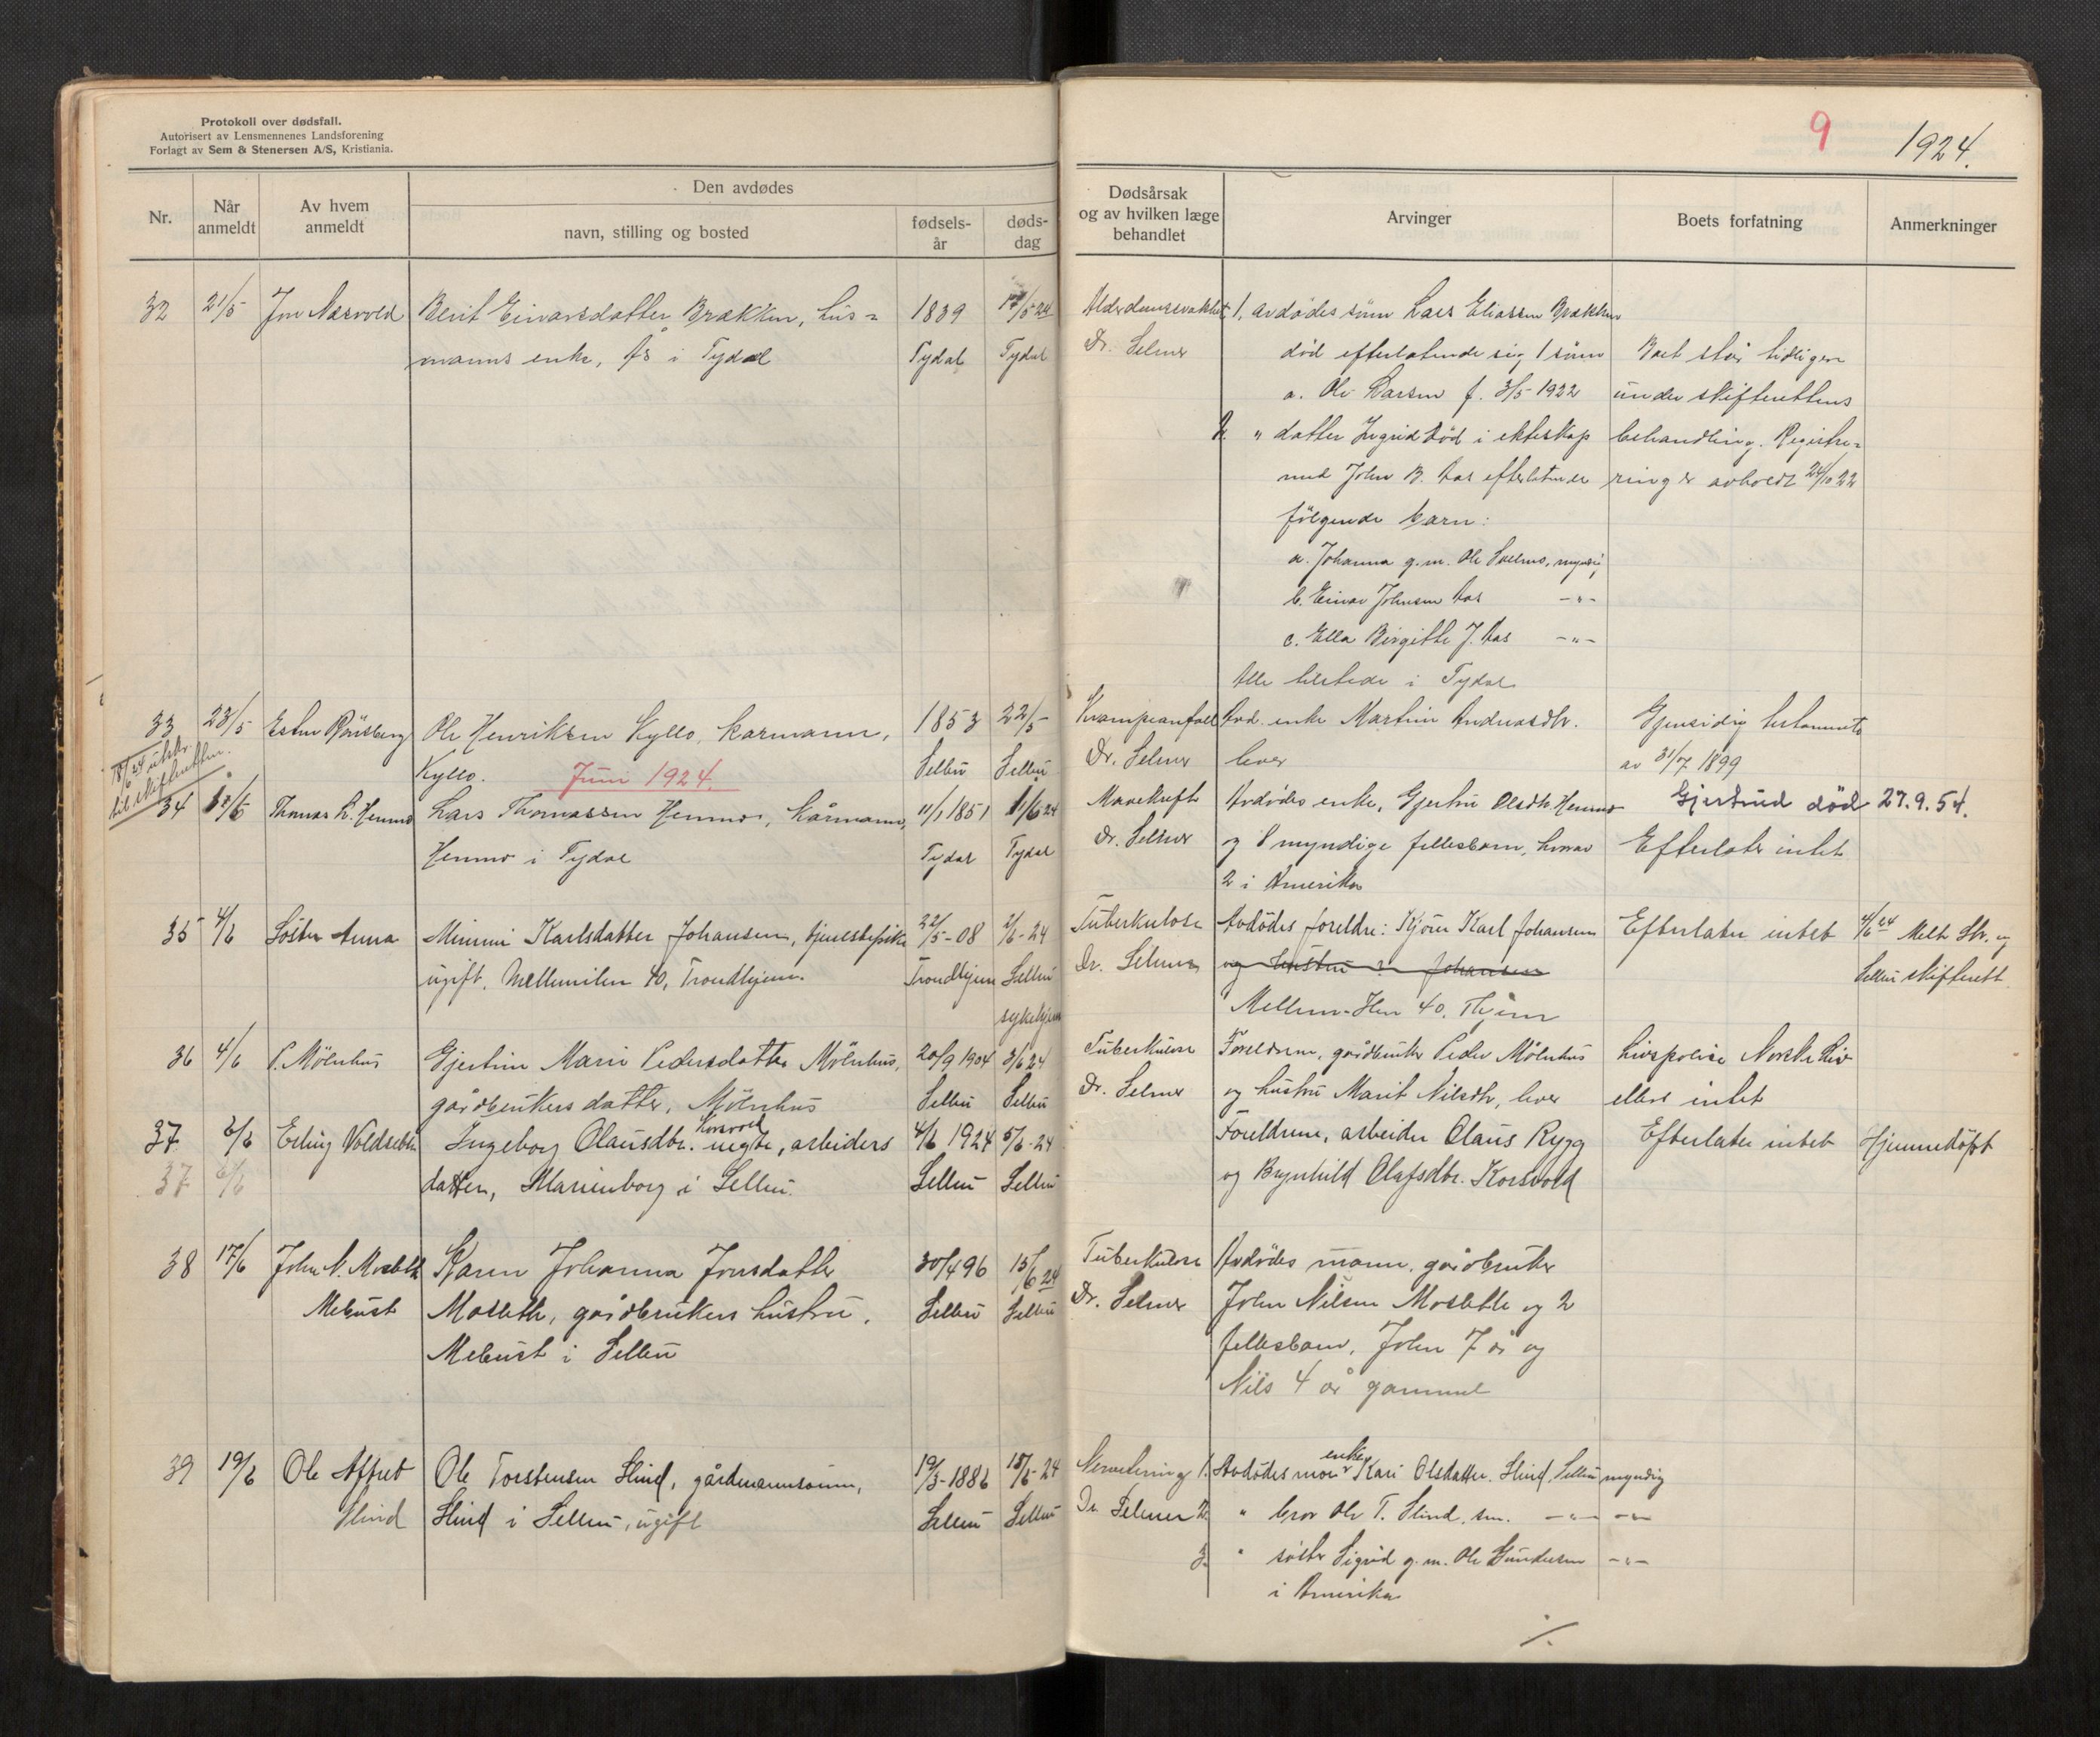 Protokoll over dødsfall.
Autorisert av Lensmennenes Landsforening
Forlagt av Sem & Stenersen A/S, Kristiania.
9
1924.
Nr.
Når anmeldt
Av hvem anmeldt
Den avdødes
navn, stilling og bosted
fødsels-år
døds-dag
Dødsårsak og av hvilken læge behandlet
Arvinger
Boets forfatning
Anmerkninger
32 21/5 Jon Næsvold Berit Einarsdatter Brækken, hus- 1839 17/5 24
manns enke, Ås i Tydal Tydal Tydal
Alderdomssvakhet
Dr. Selmer
1. avdødes sønn Lars Eliassen Brækken
død efterlatende sig 1 sønn
a. Ole Larsen f. 3/5 1922
2. " datter Ingrid død i ekteskap
med John B. Aas efterlatende
følgende barn:
a. Johanna g.m. Ole
b. Einar Johnsen Aas -"-
c. Ella Birgitte J. Aas -"-
Alle tilstede i Tydal
Boet står tidligere
under skifterettens
behandling. Registre-
ring er avholdt 24/10 22
33 23/5 Ole Henriksen Kyllo, kaarmann, 1853 22/5
Kyllo. Selbu Selbu
Krampeanfall
Dr. Selmer
Avd. enke Martine Andreasdtr.
lever
Gjensidig testamente
av 31/7 1899
18/6 24 utskr.
til skifteretten.
Juni 1924.
34 Thomas L. Henmo Lars Thomassen Henmo, kårmann, 11/1 1851 1/6 24
Henmo i Tydal Tydal Tydal
Mavekreft
Dr. Selmer
Avdødes enke, Gjertru Olsdtr. Henmo
og 8 myndige fellesbarn, hvorav
2 i Amerika
Gjertrud død 27.9.54.
Efterlater intet
35 4/6 Søster Anna Mimmi Karlsdatter Johansen, tjenestepike 22/5-08 2/6-24
ugift. Mellemilen 40, Trondhjem. Trondhjem Selbu
sykehjem
Tuberkulose
Dr. Selmer
Avdødes foreldre: Kjører Karl Johansen
og hustru ? Johansen
Mellem-Ilen 40. Thjem
Efterlater intet
4/6 24 Meldt Str. og
Selbu skifterett
36 4/6 P. Mølnhus Gjertine Marie Pedersdatter Mølnhus, 20/9 1904 3/6 24
gårdbrukers datter, Mølnhus Selbu Selbu
Tuberkulose
Dr. Selmer
Foreldrene, gårdbruker Peder Mølnhus
og hustru Marit Nilsdtr, lever
Livspolise Norske Liv
ellers intet
37 6/6 Erling Voldseth Ingeborg Olausdtr. Korsvold uegte, arbeiders 4/6 1924 5/6-24
37 6/6 datter, Marienborg i Selbu. Selbu Selbu
Foreldrene, arbeider Olaus Rygg
og Brynhild Olafsdtr. Korsvold
Efterlater intet
Hjemmedøpt
38 17/6 John N. Moslett Karen Johanna Jonsdatter 30/4 96 15/6 24
Mebust Mosletth, gårdbrukers hustru, Selbu Selbu
Mebust i Selbu
Tuberkulose
Dr. Selmer
Avdødes mann, gårdbruker
John Nilsen Mosletth og 2
fellesbarn, John 7 år og
Nils 4 år gammel
39 19/6 Ole Alfred Ole Torstensen Slind, gårdmannssønn, 19/3-1886 18/6-24
Slind Slind i Selbu, ugift Selbu Selbu
Dr. Selmer
1. Avdødes mor enke Kari Olsdatter Slind, Selbu myndig
2. " bror Ole T. Slind, sm. -"- -"-
3. " søster Sigrid g.m. Ole Gundersen -"-
i Amerika
./.